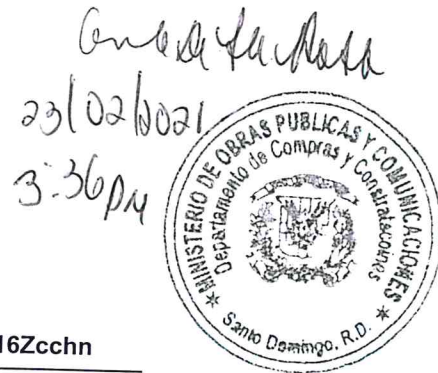 23/02/2021
3:36 PM
MINISTERIO DE OBRAS PUBLICAS Y COMUNICACIONES
Departamento de Compras y Constrataciones
Santo Domingo, R.D.
16Zcchn